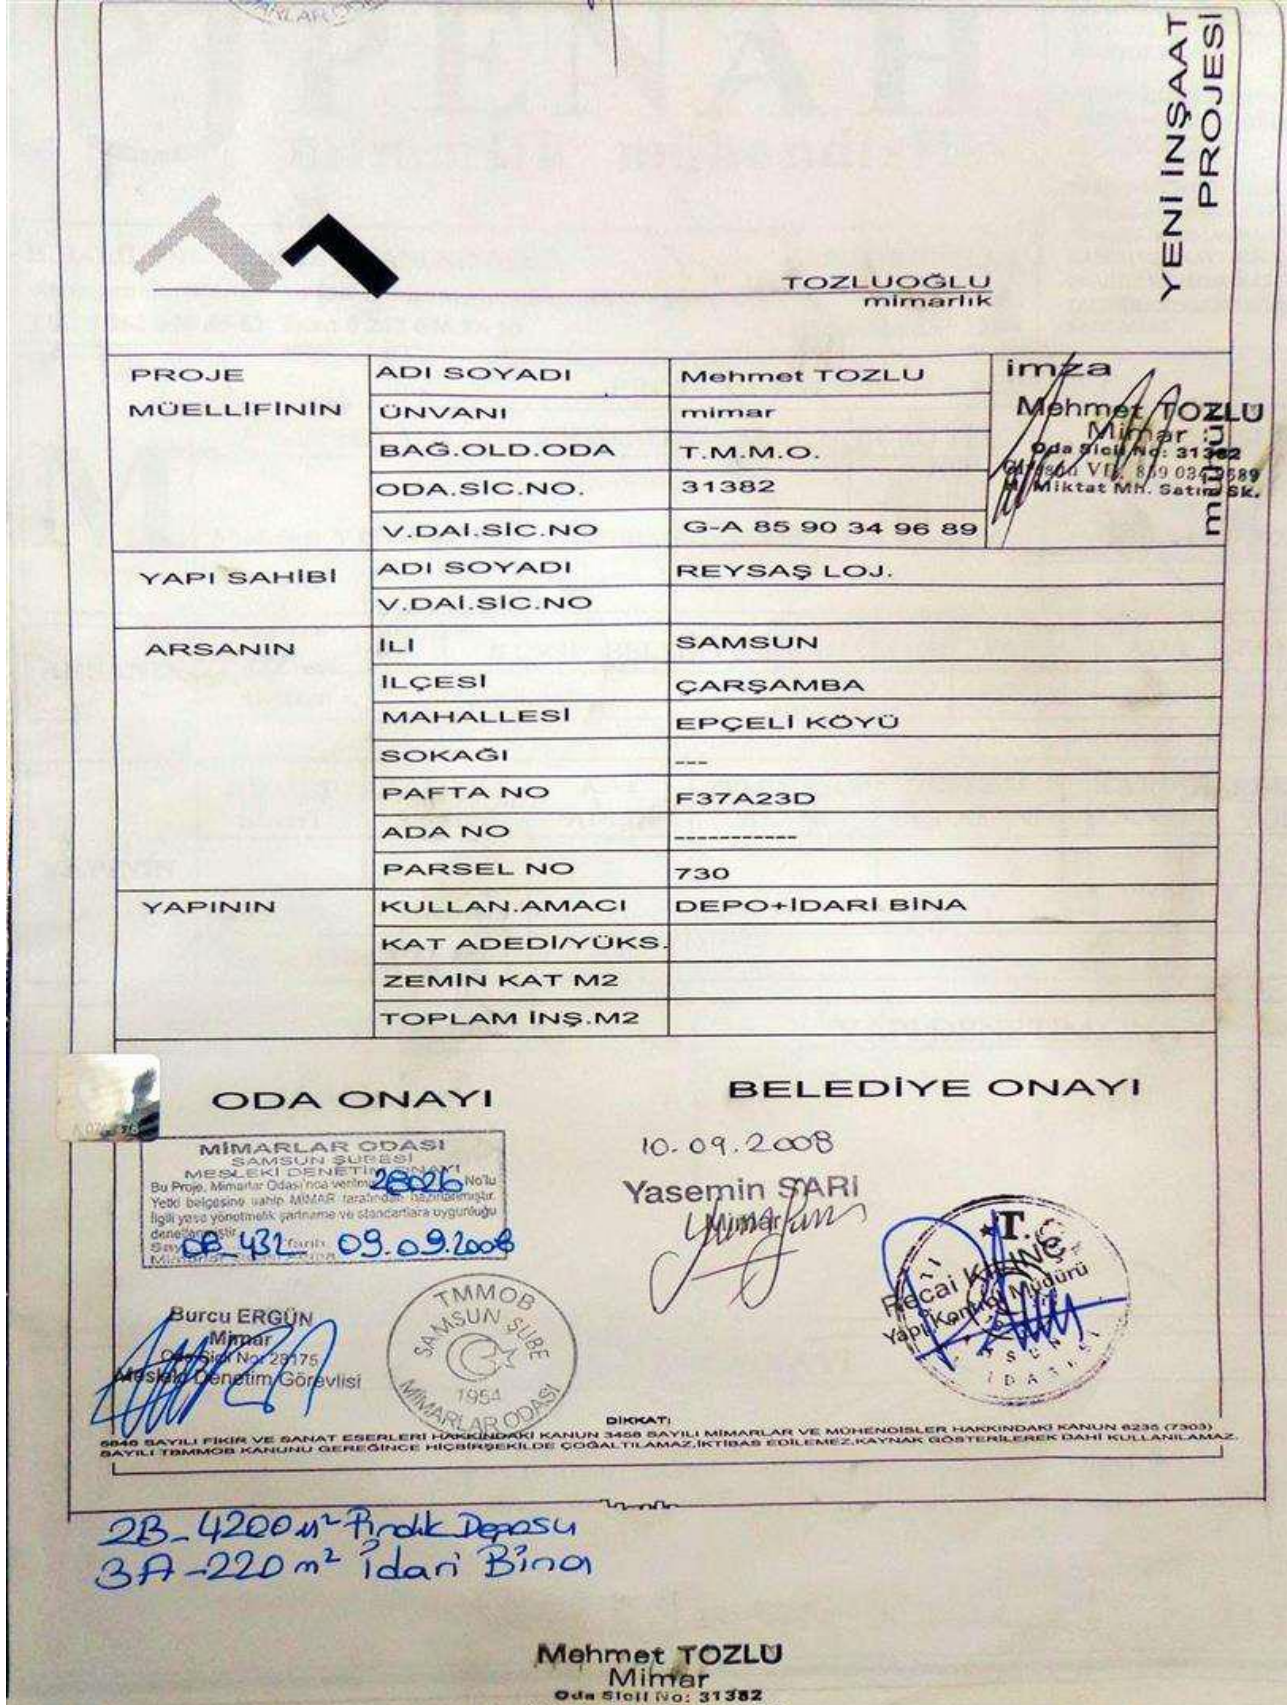 YENİ İNŞAAT
PROJESİ
TOZLUOĞLU
mimarlık
PROJE
MÜELLİFİNİN
ADI SOYADI
Mehmet TOZLU
imza
ÜNVANI
mimar
BAĞ.OLD.ODA
T.M.M.O.
ODA.SİC.NO.
31382
V.DAİ.SİC.NO
G-A 85 90 34 96 89
Mehmet TOZLU
Mimar
Oda Sicil No: 31382
H. Miktat Mh. Satım Sk.
YAPI SAHİBİ
ADI SOYADI
REYSAŞ LOJ.
V.DAİ.SİC.NO
ARSANIN
İLİ
SAMSUN
İLÇESİ
ÇARŞAMBA
MAHALLESİ
EPÇELİ KÖYÜ
SOKAĞI
---
PAFTA NO
F37A23D
ADA NO
-----------
PARSEL NO
730
YAPININ
KULLAN.AMACI
DEPO+İDARİ BİNA
KAT ADEDİ/YÜKS.
ZEMİN KAT M2
TOPLAM İNŞ.M2
ODA ONAYI
MİMARLAR ODASI
SAMSUN ŞUBESİ
MESLEKİ DENETİM ONAYI
Bu Proje, Mimarlar Odası'nca verilmiş 28026 No'lu
Yetki belgesine sahip MİMAR tarafından hazırlanmıştır.
İlgili yasa yönetmelik şartname ve standartlara uygunluğu
denetlenmiştir
08-432 09.09.2008
Burcu ERGÜN
Mimar
Oda Sicil No: 28175
Mesleki Denetim Görevlisi
TMMOB
SAMSUN ŞUBE
1954
MİMARLAR ODASI
BELEDİYE ONAYI
10.09.2008
Yasemin SARI
Mimar
T.C.
Recai KILINÇ
Yapı Kontrol Müdürü
DİKKAT:
5846 SAYILI FİKİR VE SANAT ESERLERİ HAKKINDAKİ KANUN 3458 SAYILI MİMARLAR VE MÜHENDİSLER HAKKINDAKİ KANUN 6235 (7303)
SAYILI TBMMOB KANUNU GEREĞİNCE HİCBİRŞEKİLDE ÇOĞALTILAMAZ,İKTİBAS EDİLEMEZ,KAYNAK GÖSTERİLEREK DAHİ KULLANILAMAZ.
2B-4200 m² Fındık Deposu
3A-220 m² İdari Bina
Mehmet TOZLU
Mimar
Oda Sicil No: 31382